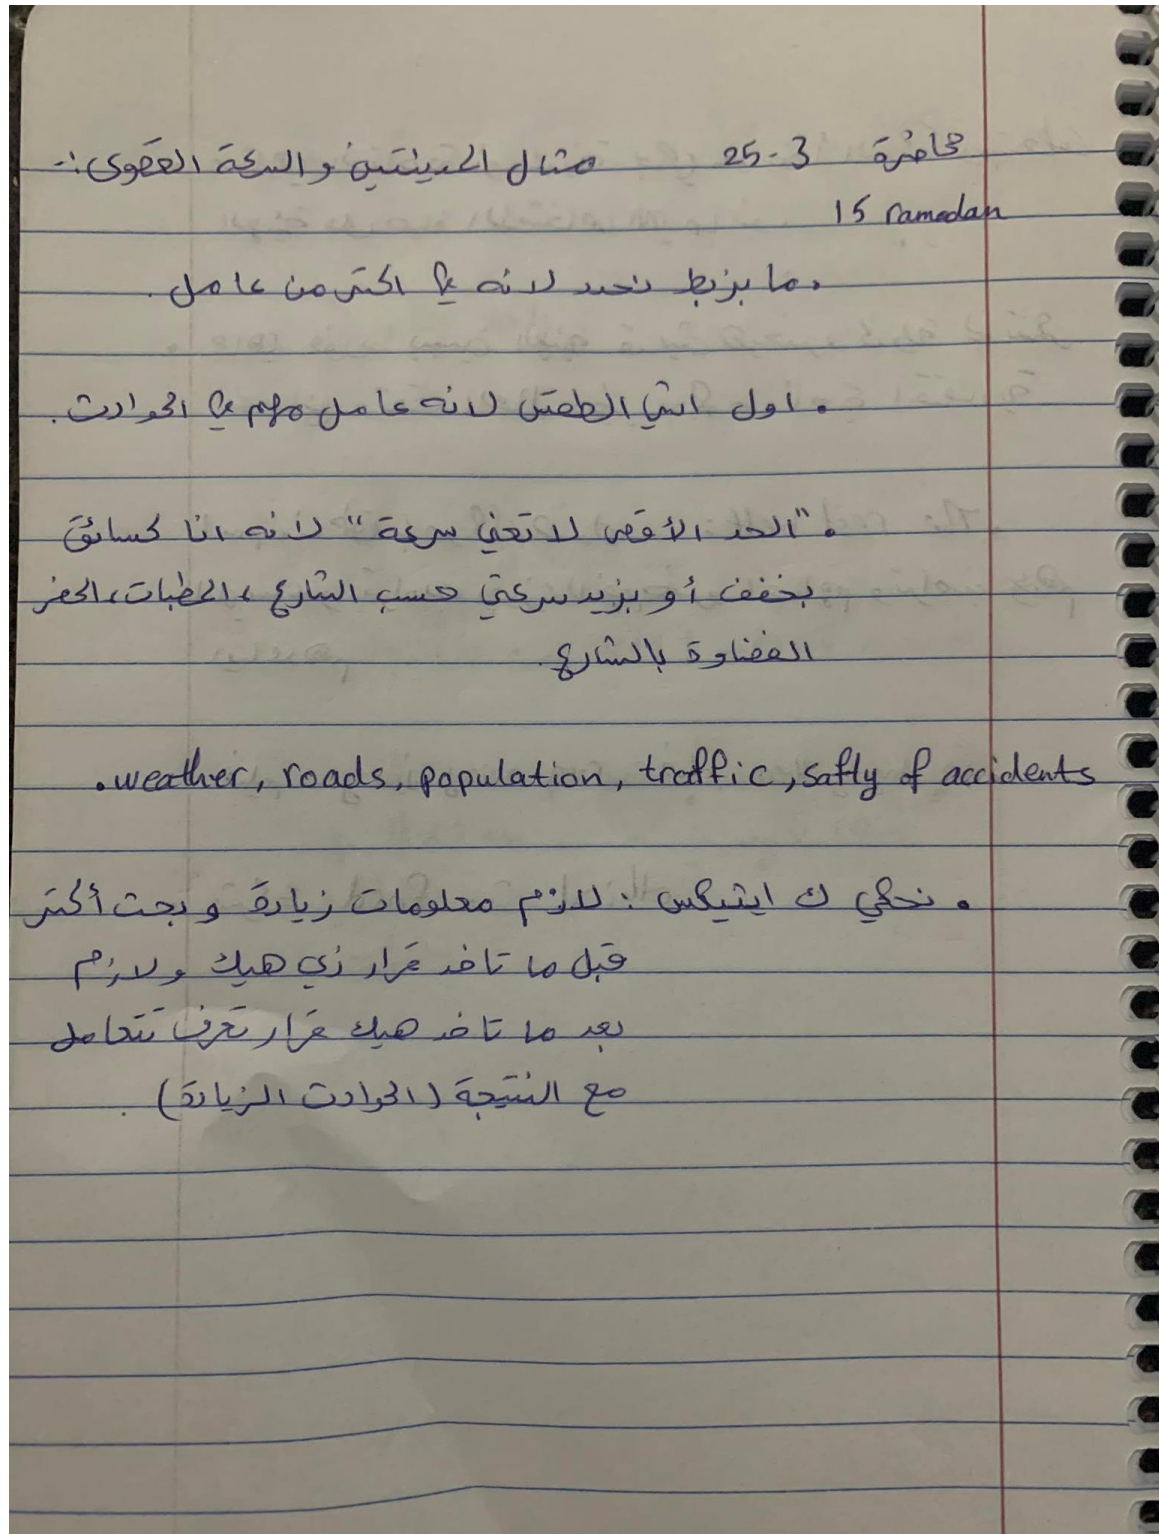 محاضرة 3-25 مثال المدينتين والسرعة القصوى :-
15 ramadan
. ما بزبط نحدد لانه في اكتر من عامل .
. اول اشي الطقس لانه عامل مهم في الحوادث .
. "الحد الأقصى لا تعني سرعة" لانه انا كسائق
بخفف أو بزيد سرعتي حسب الشارع ، المطبات ، الحفر
الفضاوة بالشارع .
. weather, roads, population, traffic, saftly of accidents
. نحكي ك ايثيكس : لازم معلومات زيادة و بحث أكتر
قبل ما تاخد قرار زي هيك و لازم
بعد ما تاخد هيك قرار تعرف تتعامل
مع النتيجة (الحوادث الزيادة) .